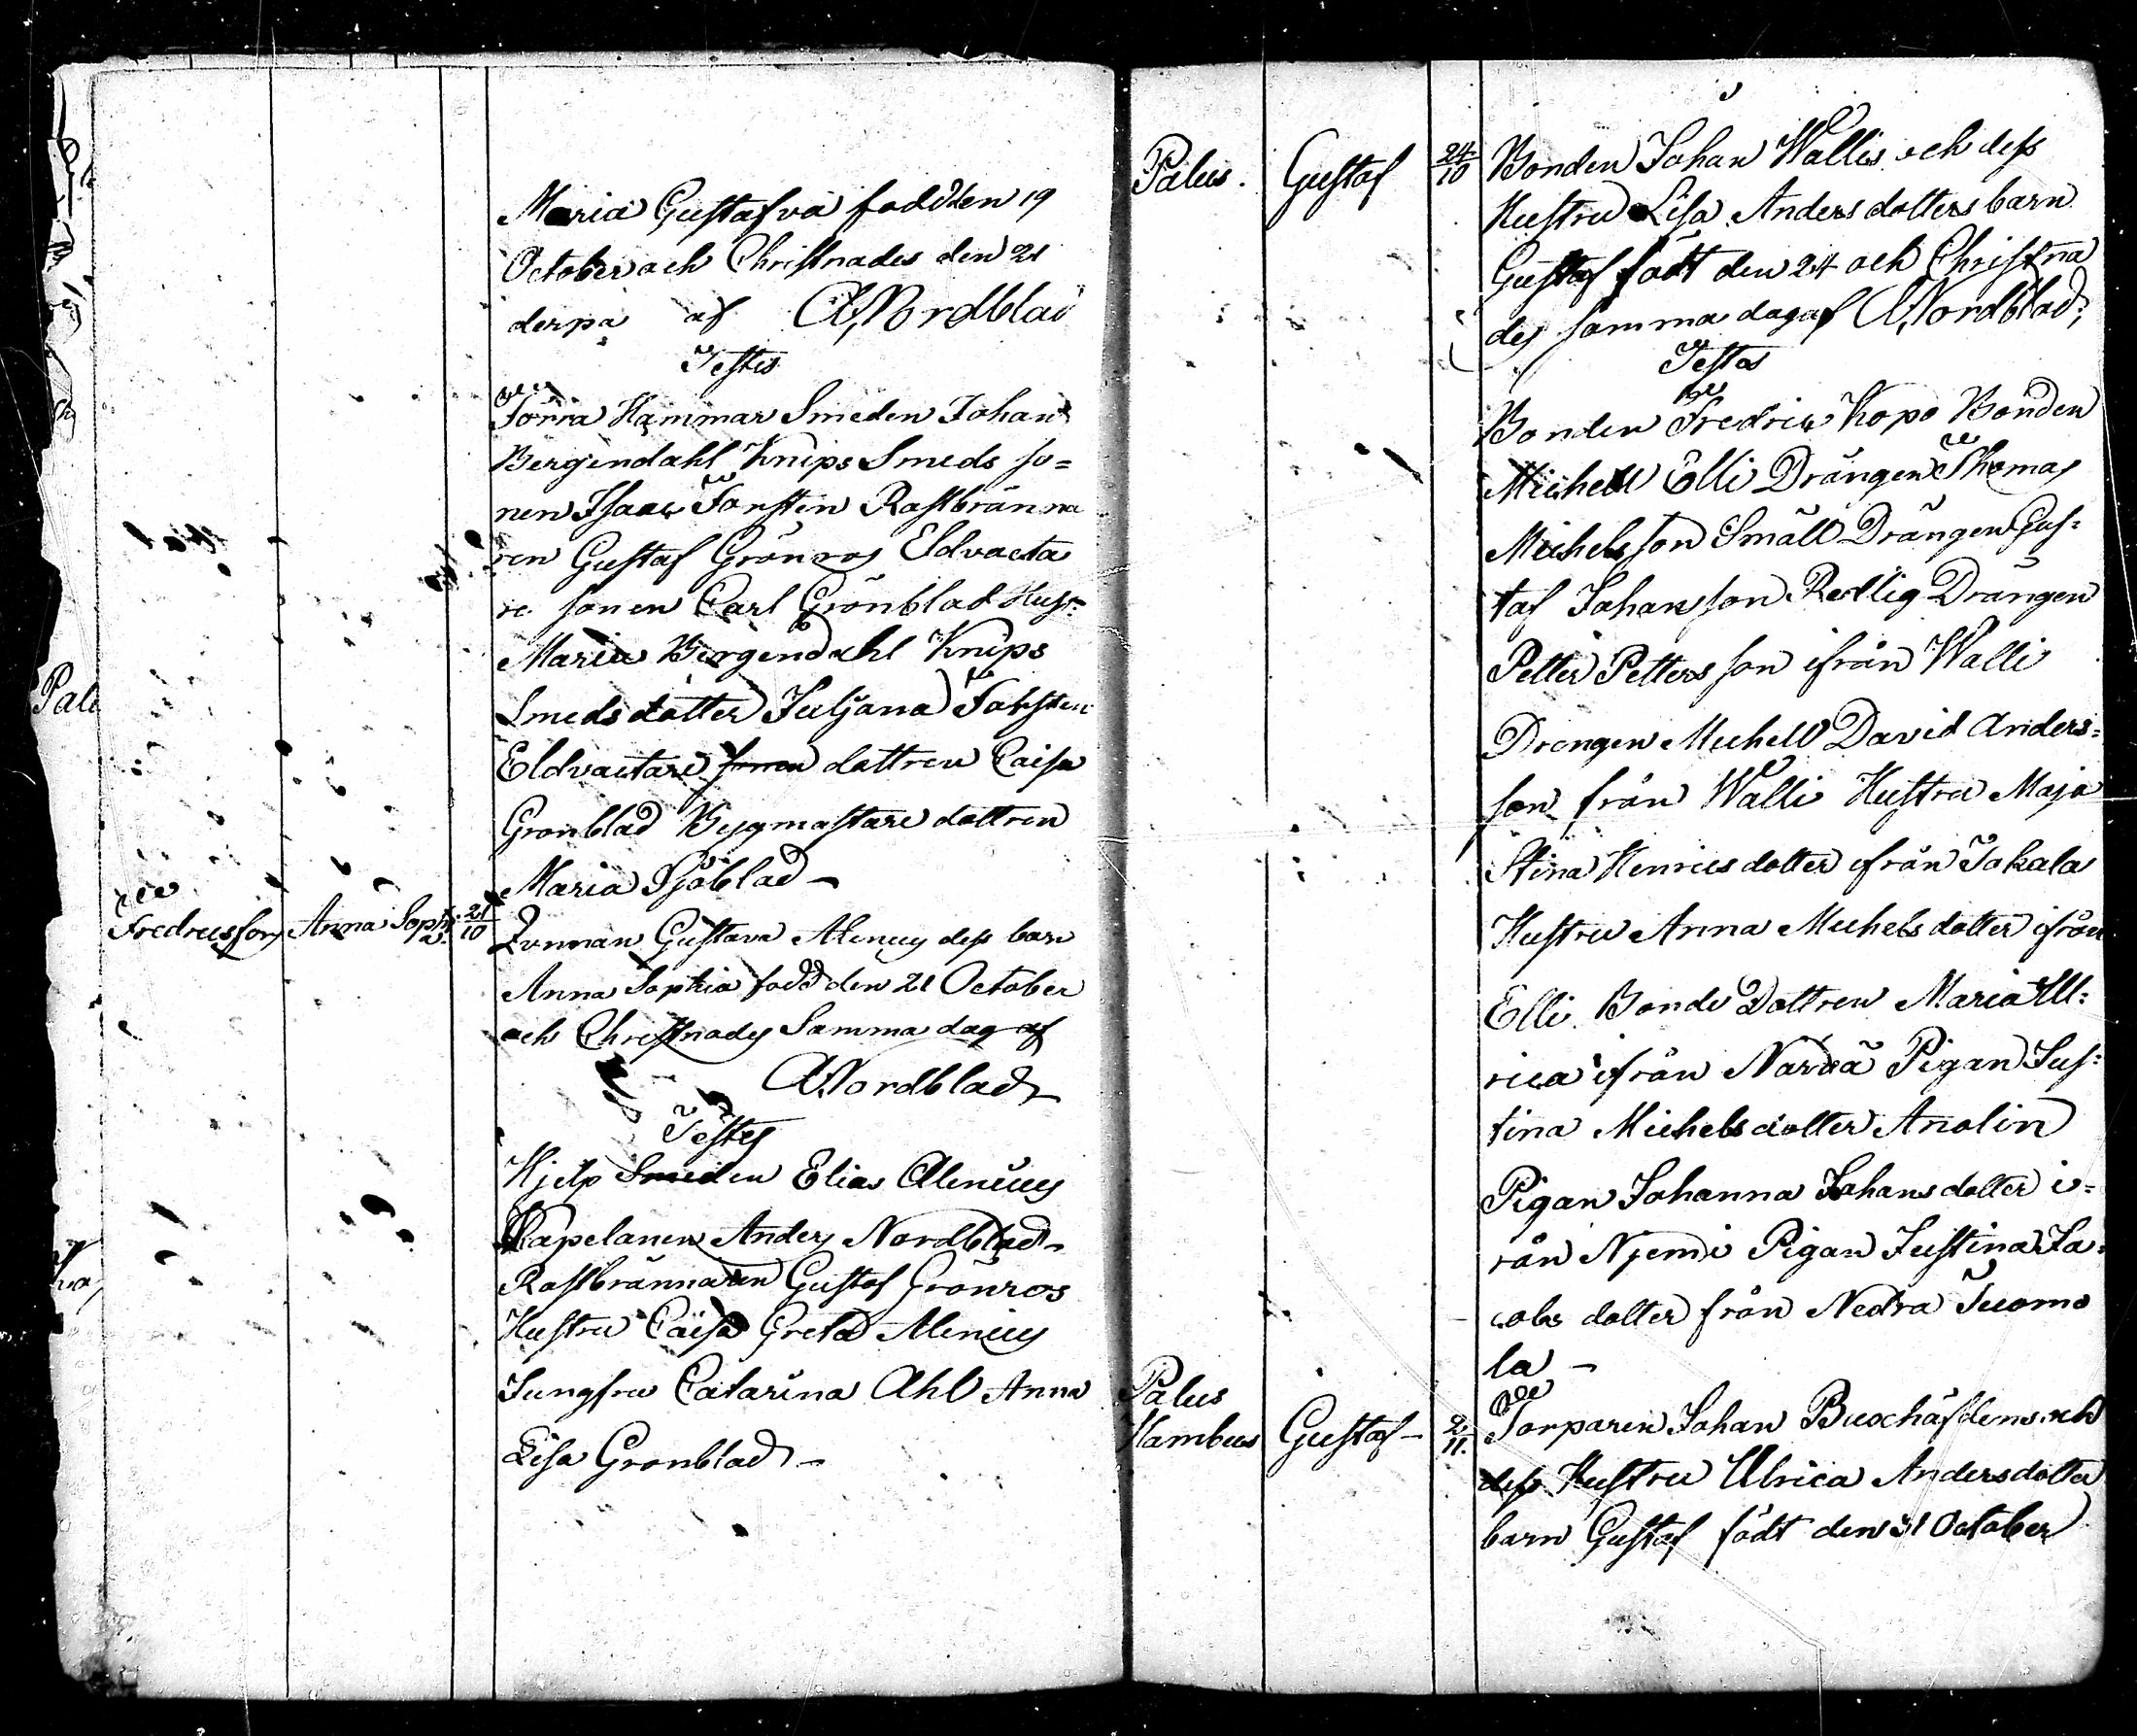 Maria Gustafva född den 19
October och Christnades den 21
derpå af A, Nordblad
Testes
Förra Hammar Smeden Johan
Bergendahl Knips Smeds so=
nen Isaac Forsten Rostbränna
ren Gustaf Grönros Eldvacta
re sonen Carl Grönblad Hust:
Maria Bergendahl Knips
Smeds dotter Juljana Forsten
Eldvactare dottren Caisa
Gronblad Bygmastare dottren
Maria Sjöblad –
Fredricsfors Anna Soph a. 21/10 Qvinnan Gustava Alenius dess barn
Anna Sophia född den 21 October
och Christnades Samma dag af
A, Nordblad
Testes
Hjelp Smeden Elias Alenius
Kapelanen Anders Nordblad –
Rostbrännaren Gustaf Grönros
Hustru Caisa Greta Alenius
Jungfru Catarina Ahl Anna
Lisa Gronblad –
Palus. Gustaf 24/10 Bonden Johan Wallis och dess
Hustru Lisa Anders dotters barn
Gustaf födt den 24 och Christna
des samma dag af A, Nordblad;
Testes
Bonden Fredric Kopo Bonden
Michell Elli Drängen Thomas
Michelsson Småll Drängen Gus=
taf Johansson Rellig Drängen
Petter Petters son ifrån Walli
Drengen Michell David Anders=
son från Walli Hustru Maja
Stina Henrics dotter ifrån Jakala
Hustru Anna Michels dotter ifrån
Elli Bonde Dottren Maria Ul=
rica ifrån Närvä Pigan Jus=
tina Michels dotter Anolin
Pigan Johanna Johans dotter i=
rån Njemi Pigan Justina Ja=
cobs dotter från Nedra Tuomo
la –
Palus
Hambus Gustaf – 2/11. Torparen Johan Buxhäfdens och
dess Hustru Ulrica Andersdotter
barn Gustaf födt den 31 October